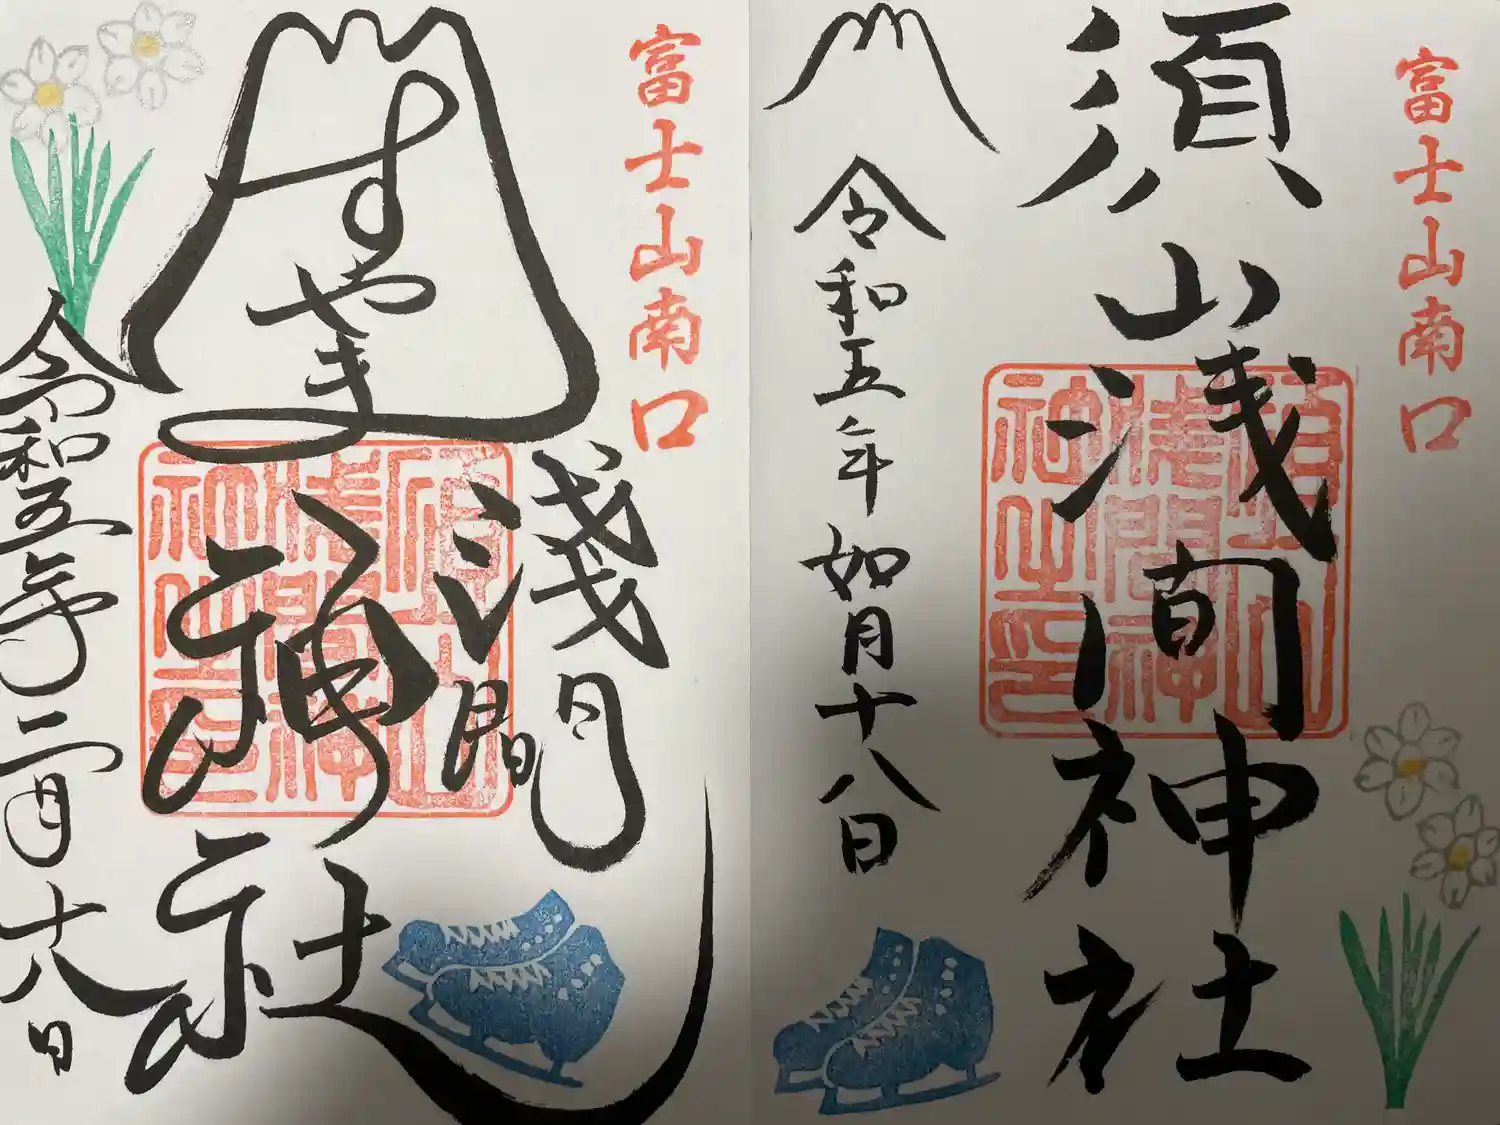 富士山南口
須山浅間神社
須山
浅間神
社之印
令和五年如月十八日
富士山南口
すやま
淺間
神社
須山
浅間神
社之印
令和五年二月十八日